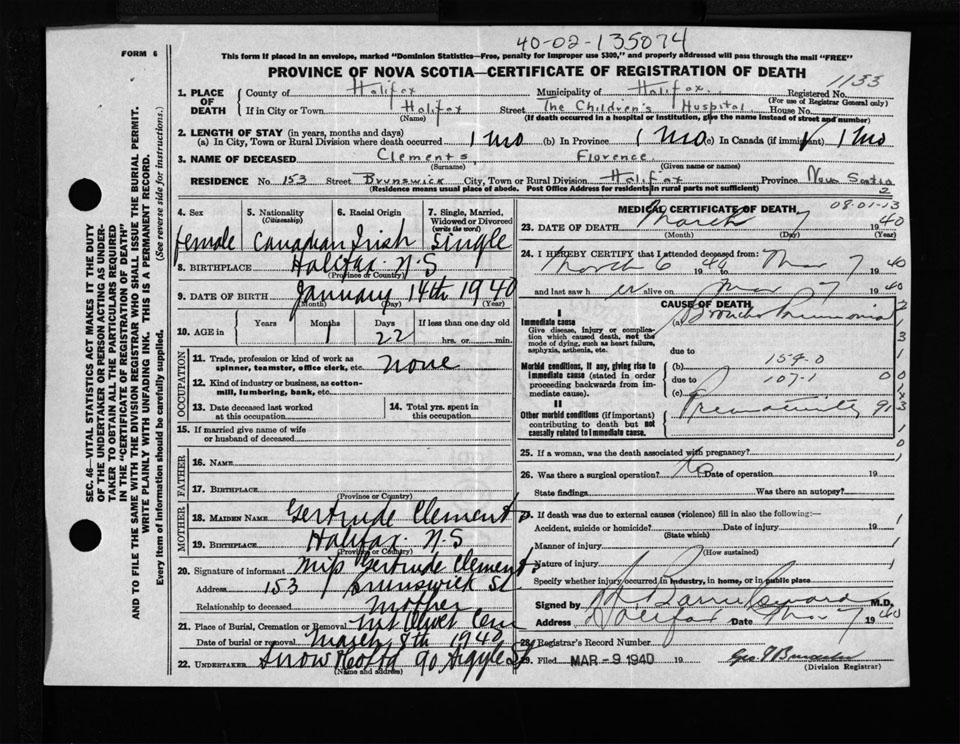 FORM 6
40-02-135074
This form if placed in an envelope, marked "Dominion Statistics—Free, penalty for improper use $300," and properly addressed will pass through the mail "FREE"
PROVINCE OF NOVA SCOTIA—CERTIFICATE OF REGISTRATION OF DEATH
1133
1. PLACE OF DEATH
County of Halifax Municipality of Halifax Registered No.
(For use of Registrar General only)
If in City or Town Halifax Street The Children's Hospital House No.
(Name) (If death occurred in a hospital or institution, give the name instead of street and number)
2. LENGTH OF STAY (in years, months and days)
(a) In City, Town or Rural Division where death occurred 1 Mo (b) In Province 1 Mo (c) In Canada (if immigrant) 1 Mo
3. NAME OF DECEASED Clements, Florence
(Surname) (Given name or names)
RESIDENCE No. 153 Street Brunswick City, Town or Rural Division Halifax Province Nova Scotia
(Residence means usual place of abode. Post Office Address for residents in rural parts not sufficient)
2
09-01-13
4. Sex
female
5. Nationality (Citizenship)
Canadian
6. Racial Origin
Irish
7. Single, Married, Widowed or Divorced (write the word)
Single
8. BIRTHPLACE Halifax N.S
(Province or Country)
9. DATE OF BIRTH January 14th 1940
(Month) (Day) (Year)
10. AGE in
Years Months Days If less than one day old
1 22 hrs. or min.
OCCUPATION
11. Trade, profession or kind of work as spinner, teamster, office clerk, etc. none
12. Kind of industry or business, as cotton-mill, lumbering, bank, etc.
13. Date deceased last worked at this occupation
14. Total yrs. spent in this occupation
15. If married give name of wife or husband of deceased
FATHER
16. NAME
17. BIRTHPLACE
(Province or Country)
MOTHER
18. MAIDEN NAME Gertrude Clements
19. BIRTHPLACE Halifax N.S
(Province or Country)
20. Signature of informant Mrs Gertrude Clements
Address 153 Brunswick St
Relationship to deceased Mother
21. Place of Burial, Cremation or Removal Mt Olivet Cem
Date of burial or removal March 8th 1940
22. UNDERTAKER Snow 90 Argyle St
(Name and address)
MEDICAL CERTIFICATE OF DEATH
23. DATE OF DEATH March 7 1940
(Month) (Day) (Year)
24. I HEREBY CERTIFY that I attended deceased from:
March 6 1940 to Mar 7 1940
and last saw her alive on Mar 7 1940
CAUSE OF DEATH
I
Immediate cause
Give disease, injury or complication which caused death, not the mode of dying, such as heart failure, asphyxia, asthenia, etc.
(a) Broncho Pneumonia
due to
Morbid conditions, if any, giving rise to immediate cause (stated in order proceeding backwards from immediate cause).
(b) 159-0
due to 107-1
(c)
II
Other morbid conditions (if important) contributing to death but not causally related to immediate cause.
Prematurity
25. If a woman, was the death associated with pregnancy?
26. Was there a surgical operation? No Date of operation 19
State findings Was there an autopsy?
27. If death was due to external causes (violence) fill in also the following:—
Accident, suicide or homicide? Date of injury 19
(State which)
Manner of injury
(How sustained)
Nature of injury
Specify whether injury occurred in industry, in home, or in public place
Signed by M.D.
Address Halifax Date Mar 7 1940
28. Registrar's Record Number
29. Filed MAR -9 1940 19
(Division Registrar)
SEC. 46—VITAL STATISTICS ACT MAKES IT THE DUTY
OF THE UNDERTAKER OR PERSON ACTING AS UNDERTAKER TO OBTAIN ALL THE PARTICULARS REQUIRED
IN THE "CERTIFICATE OF REGISTRATION OF DEATH"
AND TO FILE THE SAME WITH THE DIVISION REGISTRAR WHO SHALL ISSUE THE BURIAL PERMIT.
WRITE PLAINLY WITH UNFADING INK. THIS IS A PERMANENT RECORD.
Every item of information should be carefully supplied. (See reverse side for instructions.)